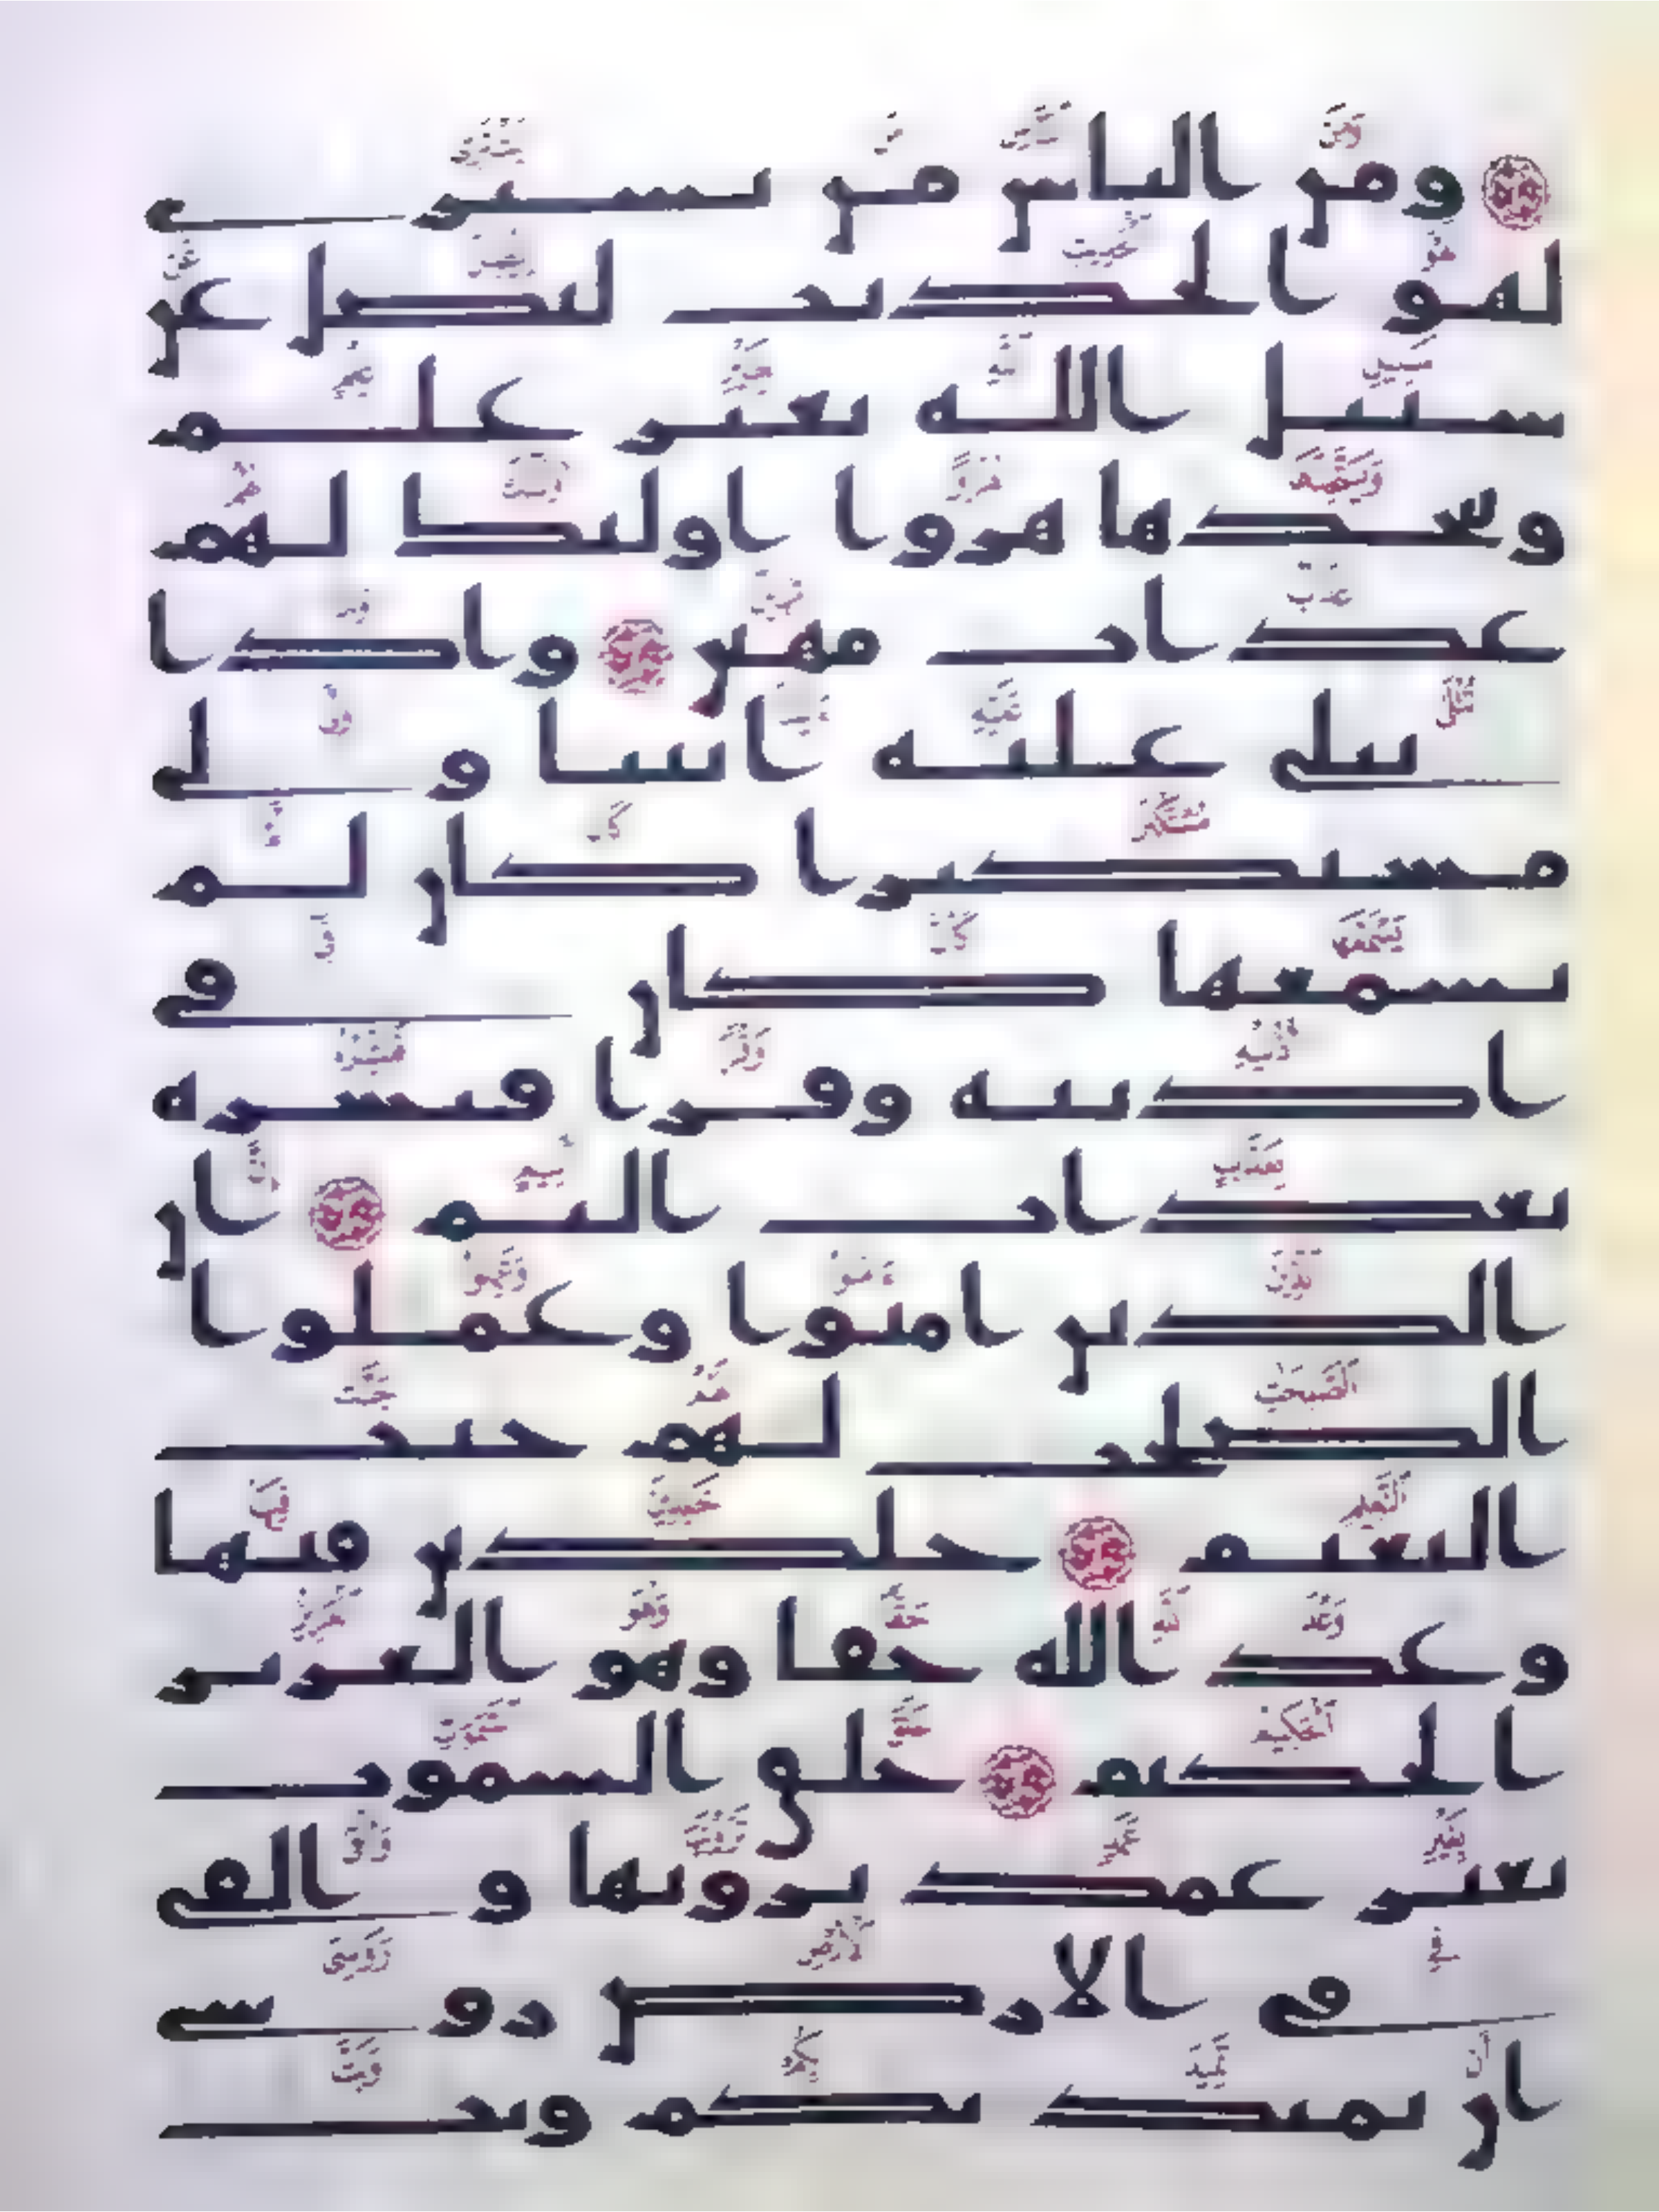 ومن الناس من يشتري
لهو الحديث ليضل عن
سبيل الله بغير علم
ويتخذها هزوا اولئك لهم
عذاب مهين واذا
تتلى عليه ايتنا ولى
مستكبرا كان لم
يسمعها كان في
اذنيه وقرا فبشره
بعذاب اليم ان
الذين امنوا وعملوا
الصلحت لهم جنت
النعيم خلدين فيها
وعد الله حقا وهو العزيز
الحكيم خلق السموت
بغير عمد ترونها والقى
في الارض روسي
ان تميد بكم وبث